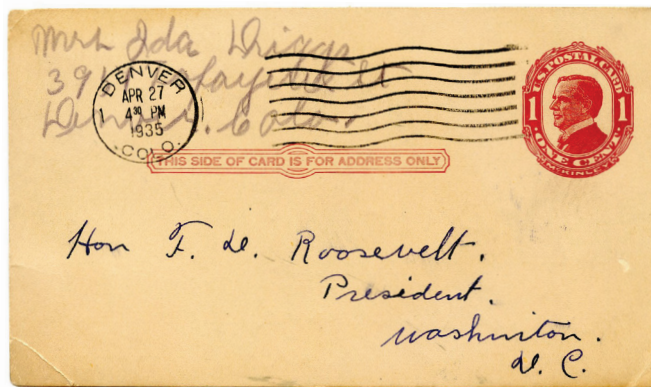 Mrs Ida
St
Denver. Colo.
DENVER
APR 27
4 30 PM
1935
COLO.
1
U.S. POSTAL CARD
1 1
ONE CENT
MCKINLEY
THIS SIDE OF CARD IS FOR ADDRESS ONLY
Hon F. D. Roosevelt.
President.
Washinton.
D. C.